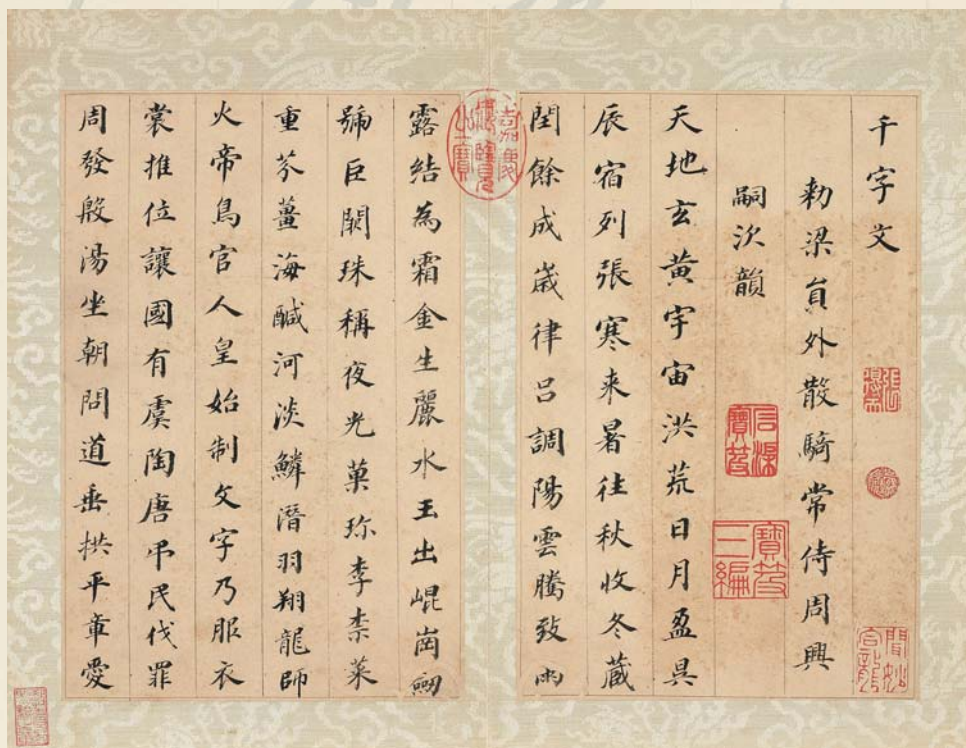 千字文
勑梁員外散騎常侍周興
嗣次韻
天地玄黃宇宙洪荒日月盈昃
辰宿列張寒来暑往秋收冬藏
閏餘成歲律呂調陽雲騰致雨
露結為霜金生麗水玉出崐崗劒
號巨闕珠稱夜光菓珎李柰菜
重芥薑海醎河淡鱗潛羽翔龍師
火帝鳥官人皇始制文字乃服衣
裳推位讓國有虞陶唐弔民伐罪
周發殷湯坐朝問道垂拱平章愛
嘉慶御覽之寶
石渠寶笈
寶笈三編